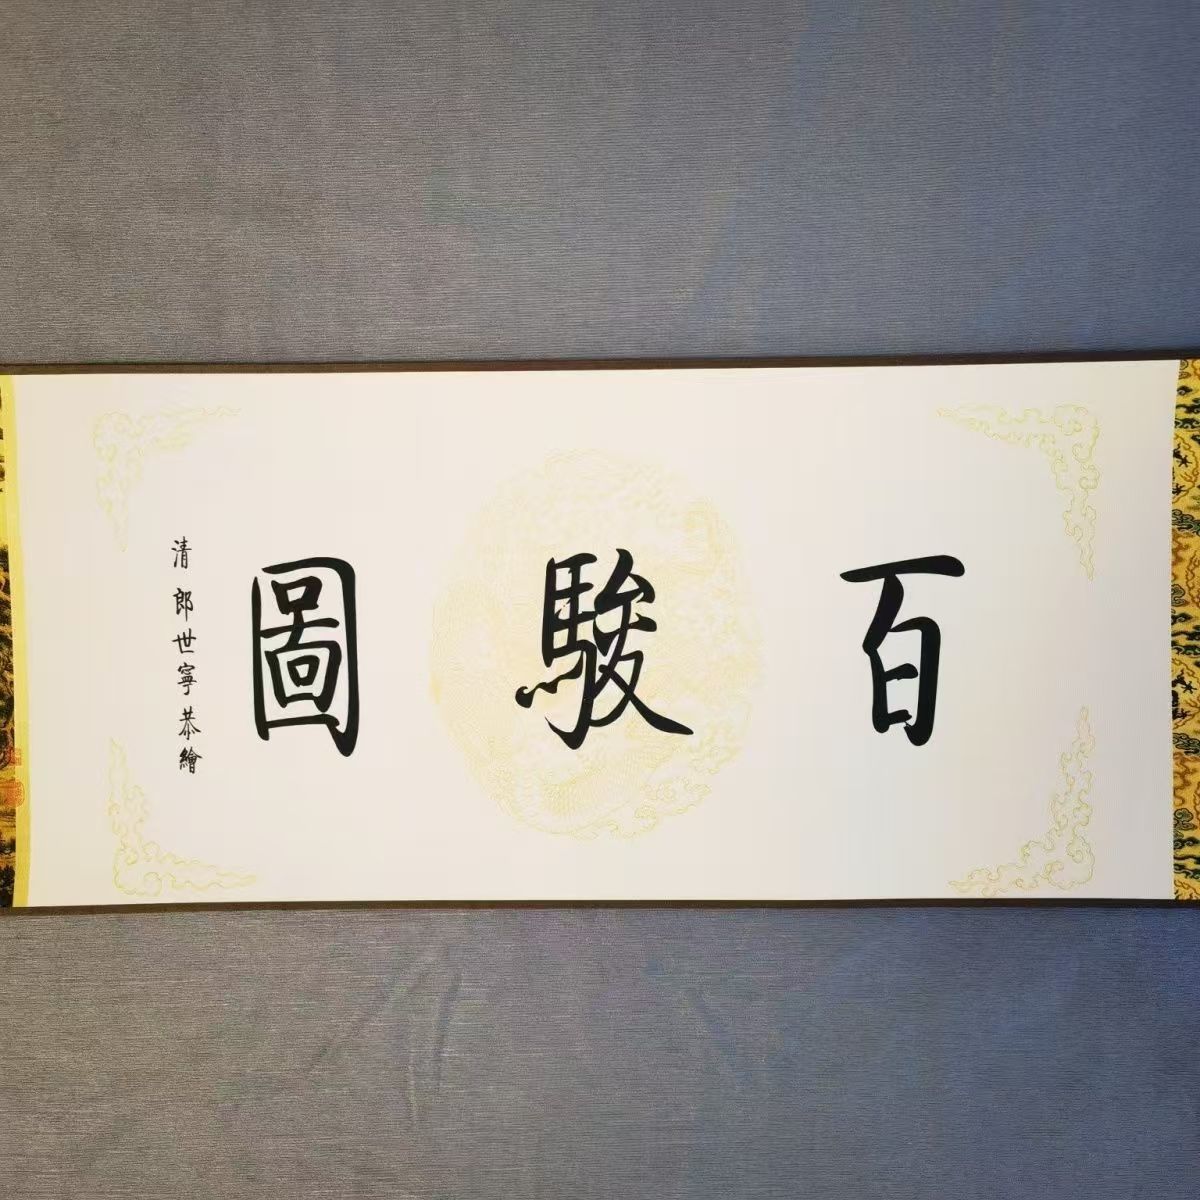 百駿圖
清郎世寧恭繪